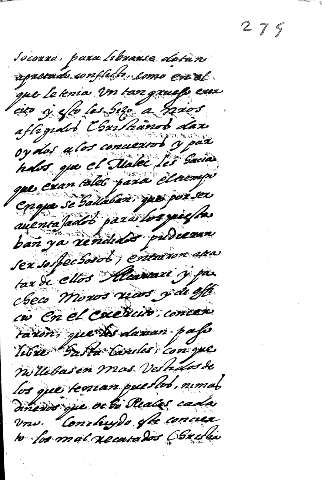 279
socorro, para librarse de tan
apretado conflicto, como en el
que le tenia un tan grueso exer
cito y esto les hizo a nros
afligidos Christianos dar
oydos a los conciertos y par
tidos que el les hacia
que eran tales para el tiempo
en que se hallaban, que por ser
aventajados para los que esta
ban ya rendidos pudieran
ser sospechosos; entraron a tra
tar de ellos y pa
checo Moros ricos y de offi
cio en el Exercito: concer
taron, que les darian passo
libre hasta con que
no llebasen mas Vestidos de
los que tenian puestos, ni mas
dineros que ocho Reales cada
uno. Concluydo este concier
to los mal recatados Christia